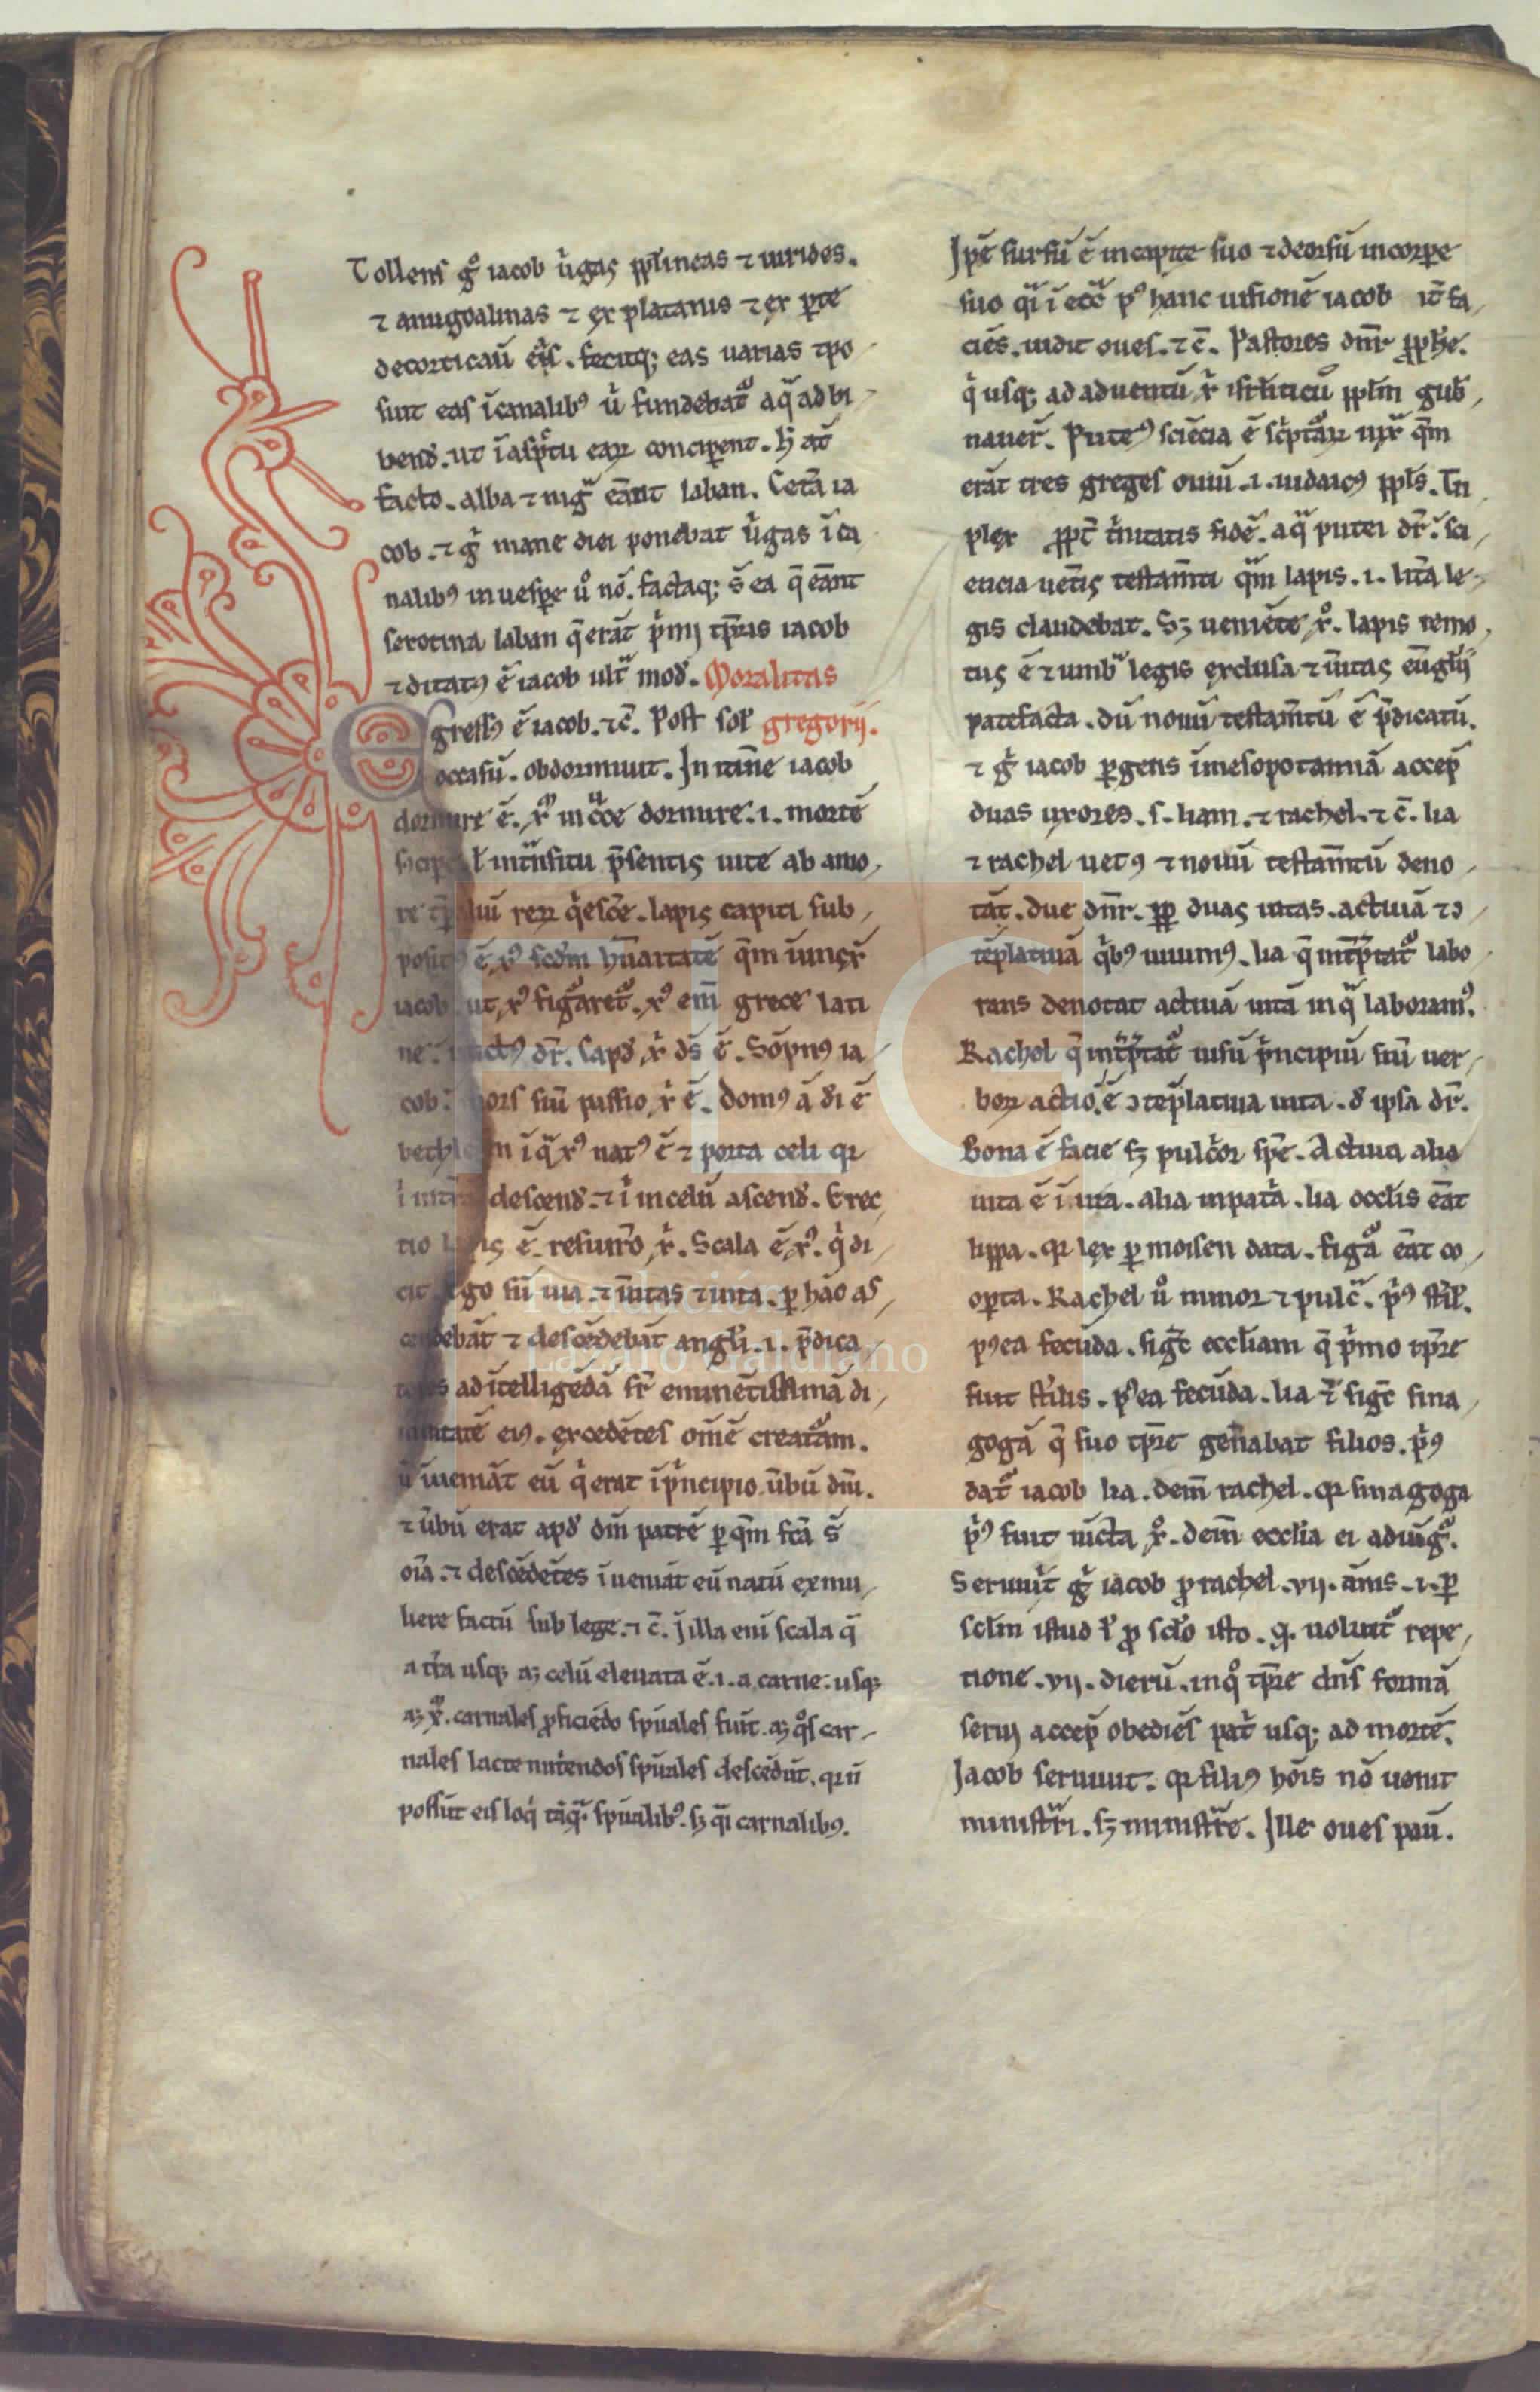 Tollens gͦ iacob ũgas ppl̃ineas ⁊ uirides.
⁊ amigdalinas ⁊ ex platanis ⁊ ex ꝑte
decorticaũ eas. fecitq; eas uarias ⁊po
suit eas ĩcanalibꝰ uͥ fundebat᷑ aqͣ ad bi
bendͫ. ut ĩaspc̃tu eaꝝ conciperent. hͦ aũ
facto. alba ⁊ nigͣ eãnt laban. Cetã ia
cob. ⁊ gͥ mane diei ponebat uͥgas ĩ ca
nalibꝰ in uespe uͦ nõ. factaq; s̃ ea q̃ eãnt
serotina laban q̃ erãt pͥmi tp̃ris iacob
⁊ ditatꝰ ẽ iacob ultͣ modũ. Moralitas
Egressꝰ ẽ iacob. ⁊c̃. Post sol̃ gregorij.
occasũ. obdormiuit. In itinẽ iacob
dormire ẽ. xͫ in cͧce dormire. i. mortẽ
l̃ intͣnsitu p̃sentis uite ab amo
re reꝝ qͥesc̃e. lapis capiti sub
ẽ. xͨ scdm hũanitatẽ q̃m ũnxr̃
iacob ut xꝰ figͣret᷑. xꝰ em̃ grece lati
ne. dr̃. Capud xͥ ds̃ ẽ. Sõpnꝰ ia
cob. mors siũ passio xͥ ẽ. Domꝰ ã dͥi ẽ
bethleem ĩ qͣ xꝰ natꝰ ẽ ⁊ porta celi qr
descendͫ. ⁊ ĩ in celũ ascendͫ. Erec
tio lapis ẽ resurr̃o xͥ. Scala ẽ xꝰ. qͥ di
cit Ego sũ uia. ⁊ ũitas ⁊ uita. ꝑ hãc as
cendebãt ⁊ descẽdebãt angl̃i. i. p̃dica
tores ad ĩtelligẽdã sr̃ eminẽtissimã di
uinitatẽ eiꝰ. excedẽtes om̃ẽ creatͣam.
uͥ ĩueniãt eũ qͥ erat ĩ pͥncipio. ũbũ dm̃.
⁊ ũbũ erat apdͫ dm̃ patrẽ ꝑ q̃m fc̃a s̃
oĩa. ⁊ descẽdẽtes ĩueniãt eũ natũ ex mu
liere factũ sub lege. ⁊ c̃. Jn illa eni scala q̃
a tr̃a usq; aꝫ celũ eleuata ẽ. i. a carne. usq;
aꝫ xͫ. carnales ꝓficiẽdo sp̃uales fiũt. aꝫ qͦs car
nales lacte nutͥendos sp̃uales descẽdũt. qr ñ
possũt eis loqͥ tãqͣ sp̃ualibꝰ. sꝫ qͣi carnalibꝰ.
Ipẽ sursũ ẽ in capite suo ⁊ deorsũ in corꝑe
suo qͣi ĩ ecc̃a pꝰ hanc uisionẽ iacob it̃ fa
ciẽs. uidit oues. ⁊c̃. Pastores dnr̃ ꝓphe.
qͥ usq; ad aduentũ xͥ isrl̃iticũ ppl̃m gub
nauer̃. Puteꝰ sciẽcia ẽ sc̃ptͣaꝝ q̃m
erãt tres greges ouiũ. i. iudaicꝰ ppl̃s. Tri
plex ꝓpt̃ tͥnitatis fidẽ. aqͣ putei dr̃. sci
encia uetis̃ testam̃ti q̃m lapis. i. lit̃a le
gis claudebat. Sꝫ ueniẽte xͦ. lapis remo
tus ẽ ⁊ umbͣ legis exclusa ⁊ ũitas eũglĩj
patefacta. dũ nouũ testam̃tũ ẽ p̃dicatũ.
⁊ gͥ iacob ꝑgens ĩ mesopotamiã accep̃
duas uxores. s. liam. ⁊ rachel. ⁊ c̃. lia
⁊ rachel uetꝰ ⁊ nouũ testam̃tũ deno
tãt. due dnr̃. ꝓp̃ duas uitas. actiuã ⁊ ↄ
tẽplatiuã qͥbꝰ uiuimꝰ. lia q̃ int̃p̃tat᷑ labo
rans denotat actiuã uitã in qͣ laboramꝰ.
Rachel q̃ int̃p̃tat᷑ uisũ pͥncipiũ siũ uer
boꝝ actio. ẽ ↄtẽplatiua uita. dͫ ipsa dr̃.
Bona ẽ facie sꝫ pulcͥor sp̃e. Actiua alia
uita ẽ ĩ uia. alia in patͥa. lia occlis eãt
lippa. qr lex ꝑ moisen data. figͣa eãt co
oꝑta. Rachel uͦ minor ⁊ pulcͣ. pͥꝰ stil̃.
pꝰea fecũda. figt̃ eccliam q̃ pͥmo tp̃re
fuit stͥlis. pꝰea fecũda. lia ⁊ sigt̃ sina
gogã q̃ suo tp̃re gen̄abat filios. pͥꝰ
dat᷑ iacob lia. dem̃ rachel. qr sinagoga
pͥꝰ fuit iũcta xͦ. dem̃ ecclia ei adiũgͥ.
Seruiuit gͥ iacob ꝓ rachel. vij. ãnis. i. ꝑ
sclm̃ istud l̃ ꝓ sclo isto. q. uoluit᷑ repe
tione. vij. dierũ. in qͦ tp̃re dñs formã
serui accep̃ obediẽs patͥ usq; ad mortẽ.
Jacob seruiuit. qr filiꝰ hõis nõ uenit
ministͣri. sꝫ ministͣre. Ille oues pau.
FLG
Fundación
Lázaro Galdiano